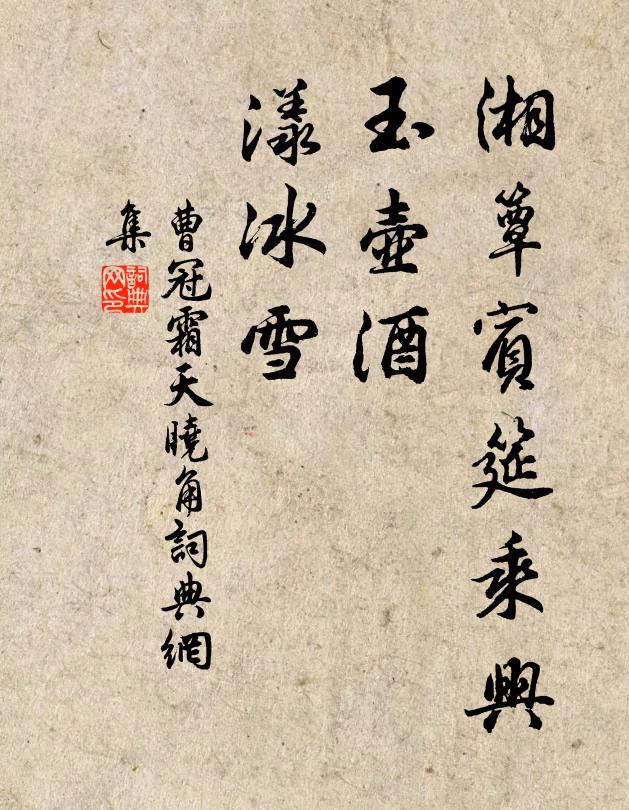 湘簟賓筵乘興
玉壺酒
漾冰雪
曹冠霜天曉角詞典網
集
詞典
网印